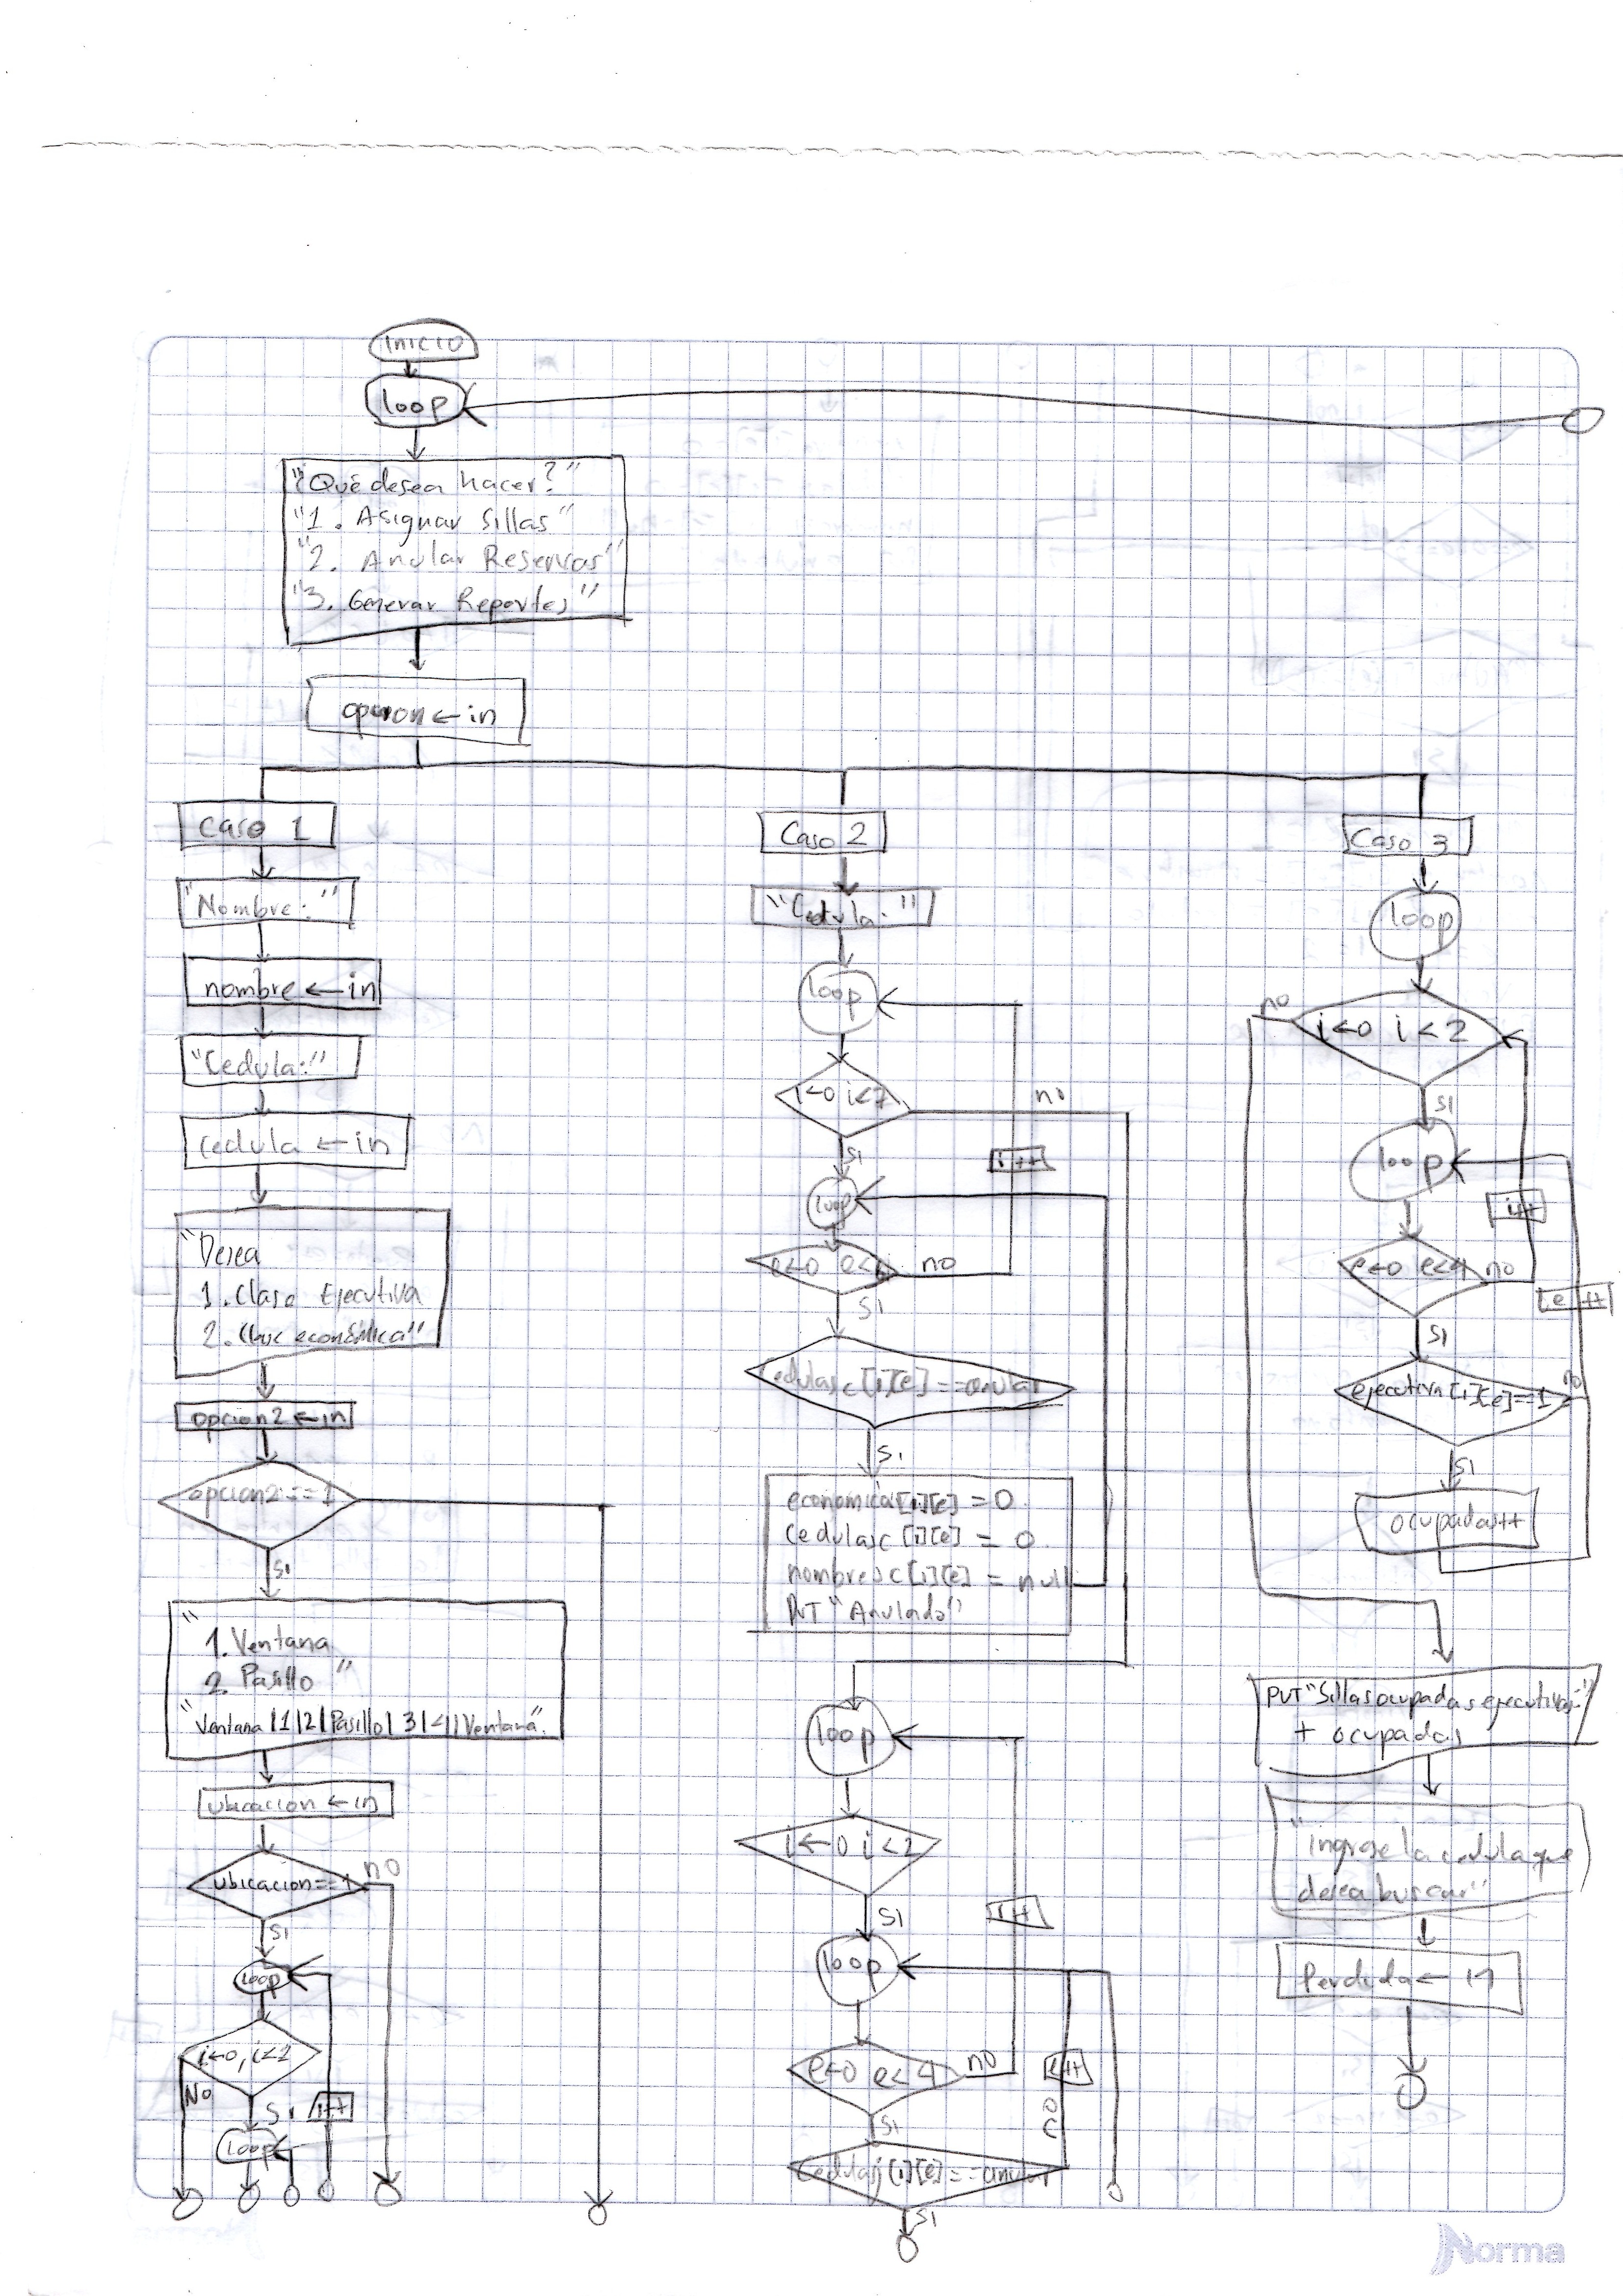 inicio
loop
"¿Qué desea hacer?"
"1. Asignar Sillas"
"2. Anular Reservas"
"3. Generar Reportes"
opcion ← in
Caso 1
"Nombre:"
nombre ← in
"Cedula:"
cedula ← in
"Desea
1. Clase Ejecutiva
2. Clase económica"
opcion2 ← in
opcion2 == 1
si
"
1. Ventana
2. Pasillo "
"Ventana |1|2| Pasillo | 3|4| Ventana".
ubicacion ← in
ubicacion == 1
no
si
loop
i←0, i<2
No
si
i++
loop
Caso 2
"Cedula:"
loop
no
si
i++
loop
no
si
cedulasc[i][e] == anular
si
economica[i][e] = 0
cedulasc[i][e] = 0
nombresc[i][e] = null
PUT "Anulado"
loop
i←0 i<2
si
i++
loop
e←0 e<4
no
e++
si
cedulasj[i][e] == anular
si
Caso 3
loop
i←0 i<2
no
si
loop
i++
e←0 e<4
no
e++
si
ejecutiva[i][e]==1
no
si
ocupadas++
PUT "Sillas ocupadas ejecutivas:"
+ ocupadas
"ingrese la cedula que
desea buscar:"
Perdida ← in
Norma